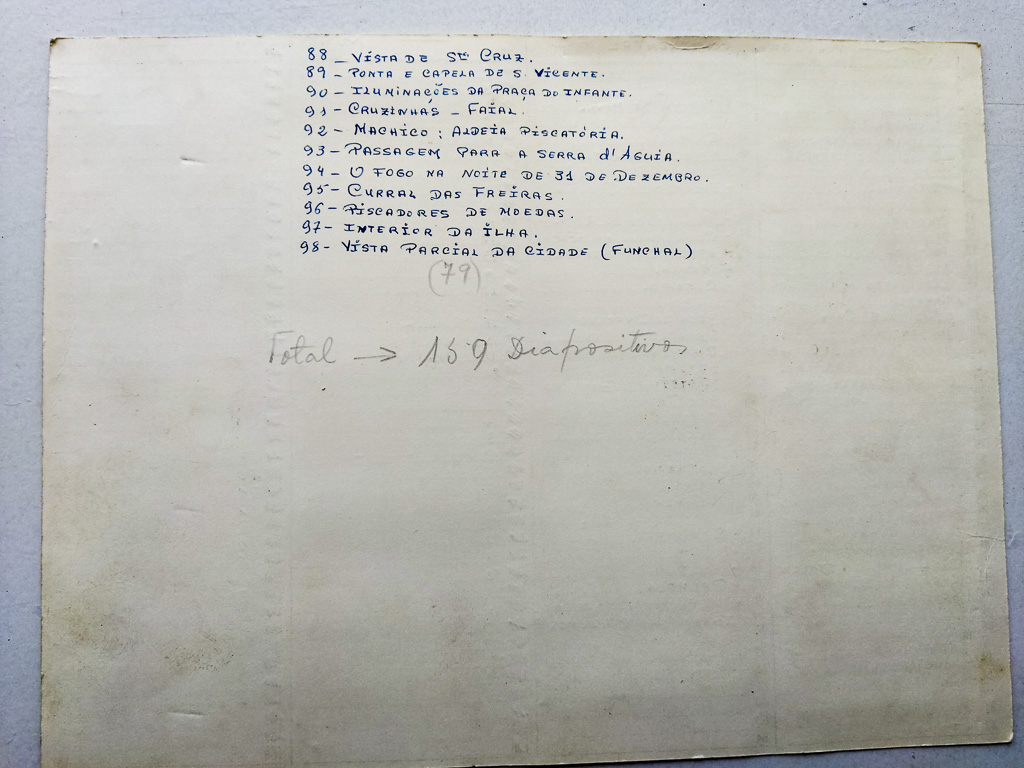 88 - VISTA DE Sta CRUZ.
89 - PONTA E CAPELA DE S. VICENTE.
90 - ILUMINAÇÕES DA PRAÇA DO INFANTE.
91 - CRUZINHAS - FAIAL.
92 - MACHICO: ALDEIA PISCATÓRIA.
93 - PASSAGEM PARA A SERRA d'ÁGUIA.
94 - O FOGO NA NOITE DE 31 DE DEZEMBRO.
95 - CURRAL DAS FREIRAS.
96 - PISCADORES DE MOEDAS.
97 - INTERIOR DA ILHA.
98 - VISTA PARCIAL DA CIDADE (FUNCHAL)
(79)
Total → 159 Diapositivos